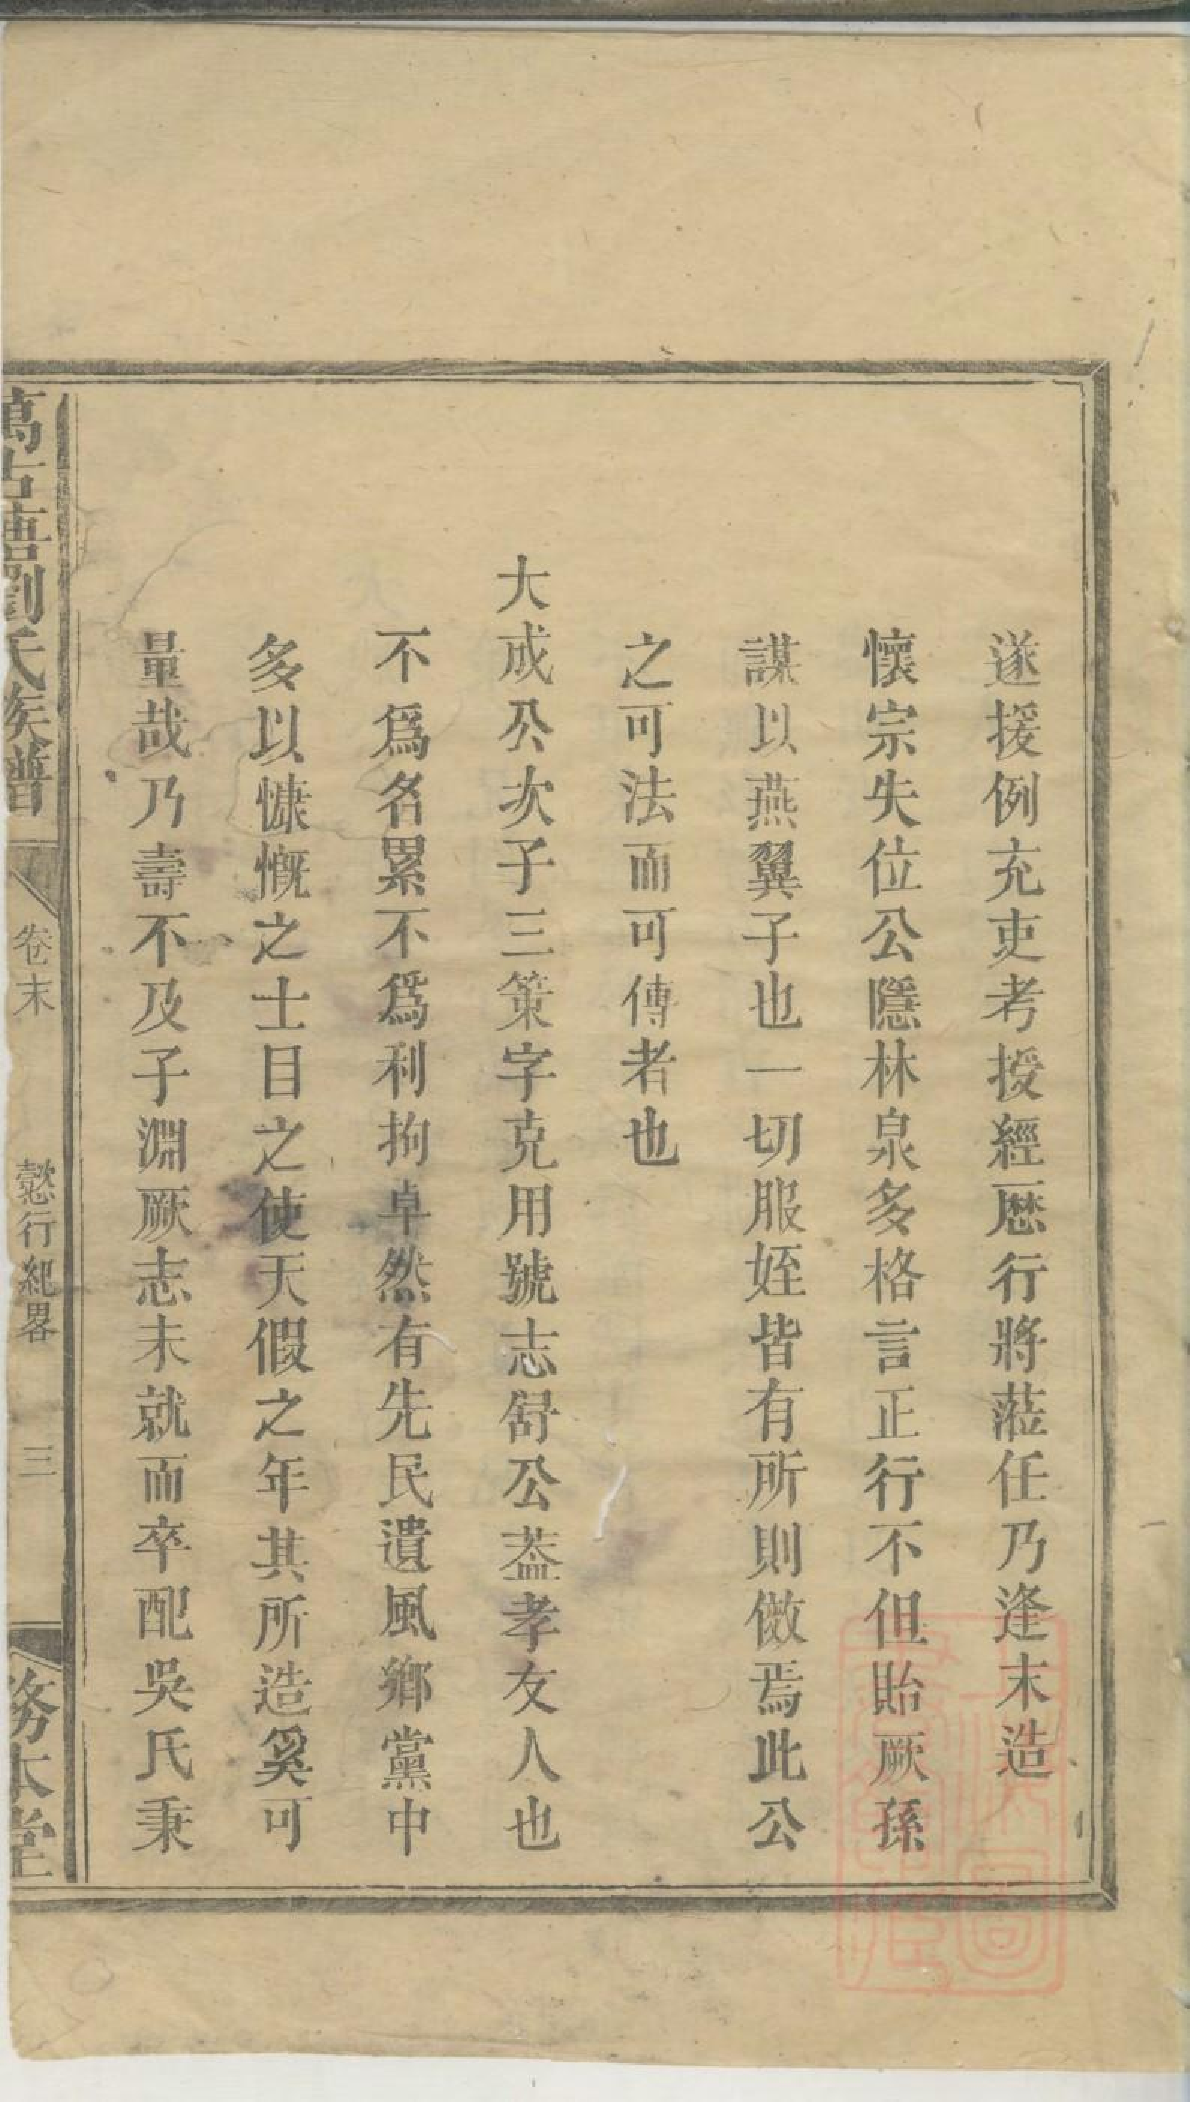 遂援例充吏考授經厯行將蒞任乃逢末造
懷宗失位公隱林泉多格言正行不但貽厥孫
謀以燕翼子也一切服姪皆有所則倣焉此公
之可法而可傳者也
大成公次子三策字克用號志舒公葢孝友人也
不爲名累不爲利拘卓然有先民遺風鄉黨中
多以慷慨之士目之使天假之年其所造奚可
量哉乃壽不及子淵厥志未就而卒配吳氏秉
萬古塘劉氏族譜
卷末
懿行紀畧
三
務本堂